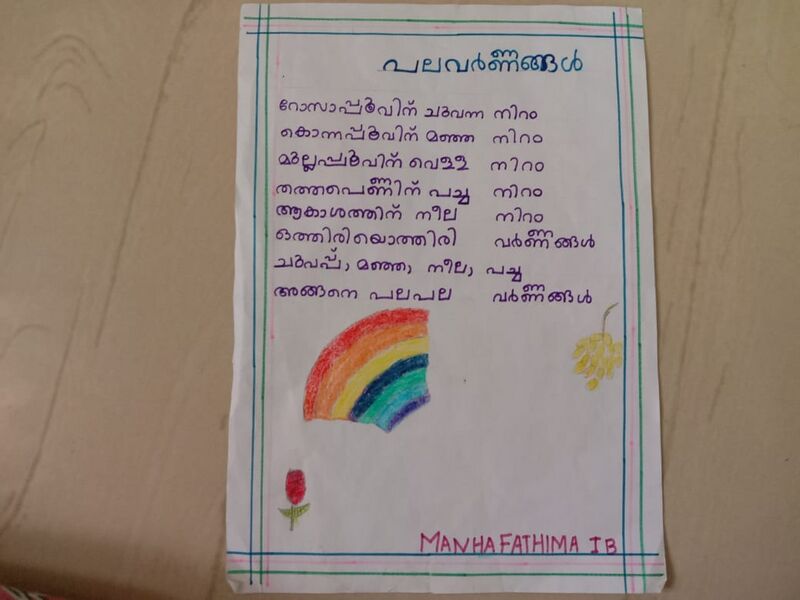 പലവർണ്ണങ്ങൾ
റോസാപ്പൂവിന് ചുവന്ന നിറം
കൊന്നപ്പൂവിന് മഞ്ഞ നിറം
മുല്ലപ്പൂവിന് വെള്ള നിറം
തത്തപെണ്ണിന് പച്ച നിറം
ആകാശത്തിന് നീല നിറം
ഒത്തിരിയൊത്തിരി വർണ്ണങ്ങൾ
ചുവപ്പ്, മഞ്ഞ, നീല, പച്ച
അങ്ങനെ പലപല വർണ്ണങ്ങൾ
MANHA FATHIMA I B